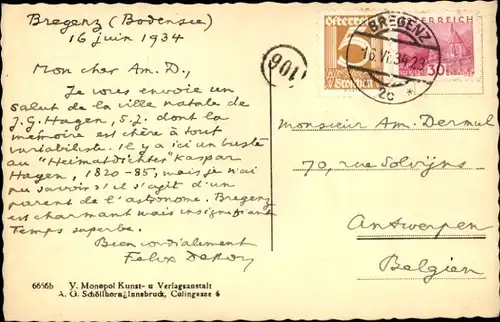 Bregenz (Bodensee)
16 juin 1934
Mon cher Am. D.,
Je vous envoie un
salut de la ville natale de
J. G. Hagen, S.J. dont la
mémoire est chère à tout
variabiliste. Il y a ici un buste
au "Heimatdichter" Kaspar
Hagen, 1820-85, mais je n'ai
pu savoir s'il s'agit d'un
parent de l'astronome. Bregenz
est charmant mais insignifiant
Temps superbe.
Bien cordialement
Felix
6656b V. Monopol Kunst- u Verlagsanstalt
A. G. Schöllhorn, Innsbruck, Colingasse 6
106
Österreich
5
BREGENZ
16.VI.34.23
2c *
ÖSTERREICH
30
Monsieur Am. Dermul
70, rue Solvijns
Antwerpen
Belgien